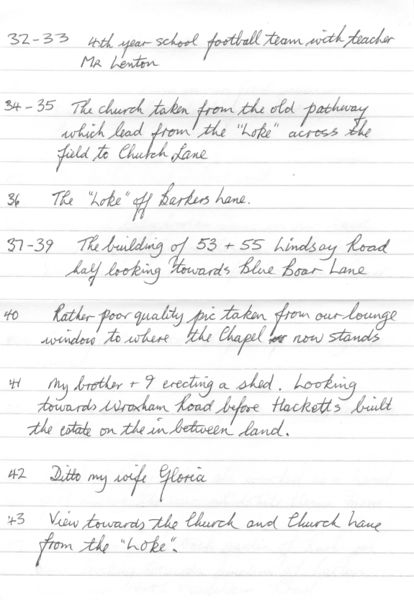 32-33 4th year school football team with teacher
Mr Lenton
34-35 The church taken from the old pathway
which lead from the "Loke" across the
field to Church Lane
36 The "Loke" off Barkers Lane.
37-39 The building of 53 + 55 Lindsay Road
half looking towards Blue Boar Lane
40 Rather poor quality pic taken from our lounge
window to where the Chapel now stands
41 My brother + I erecting a shed. Looking
towards Wroxham Road before Hacketts built
the estate on the in between land.
42 Ditto my wife Gloria
43 View towards the Church and Church Lane
from the "Loke".